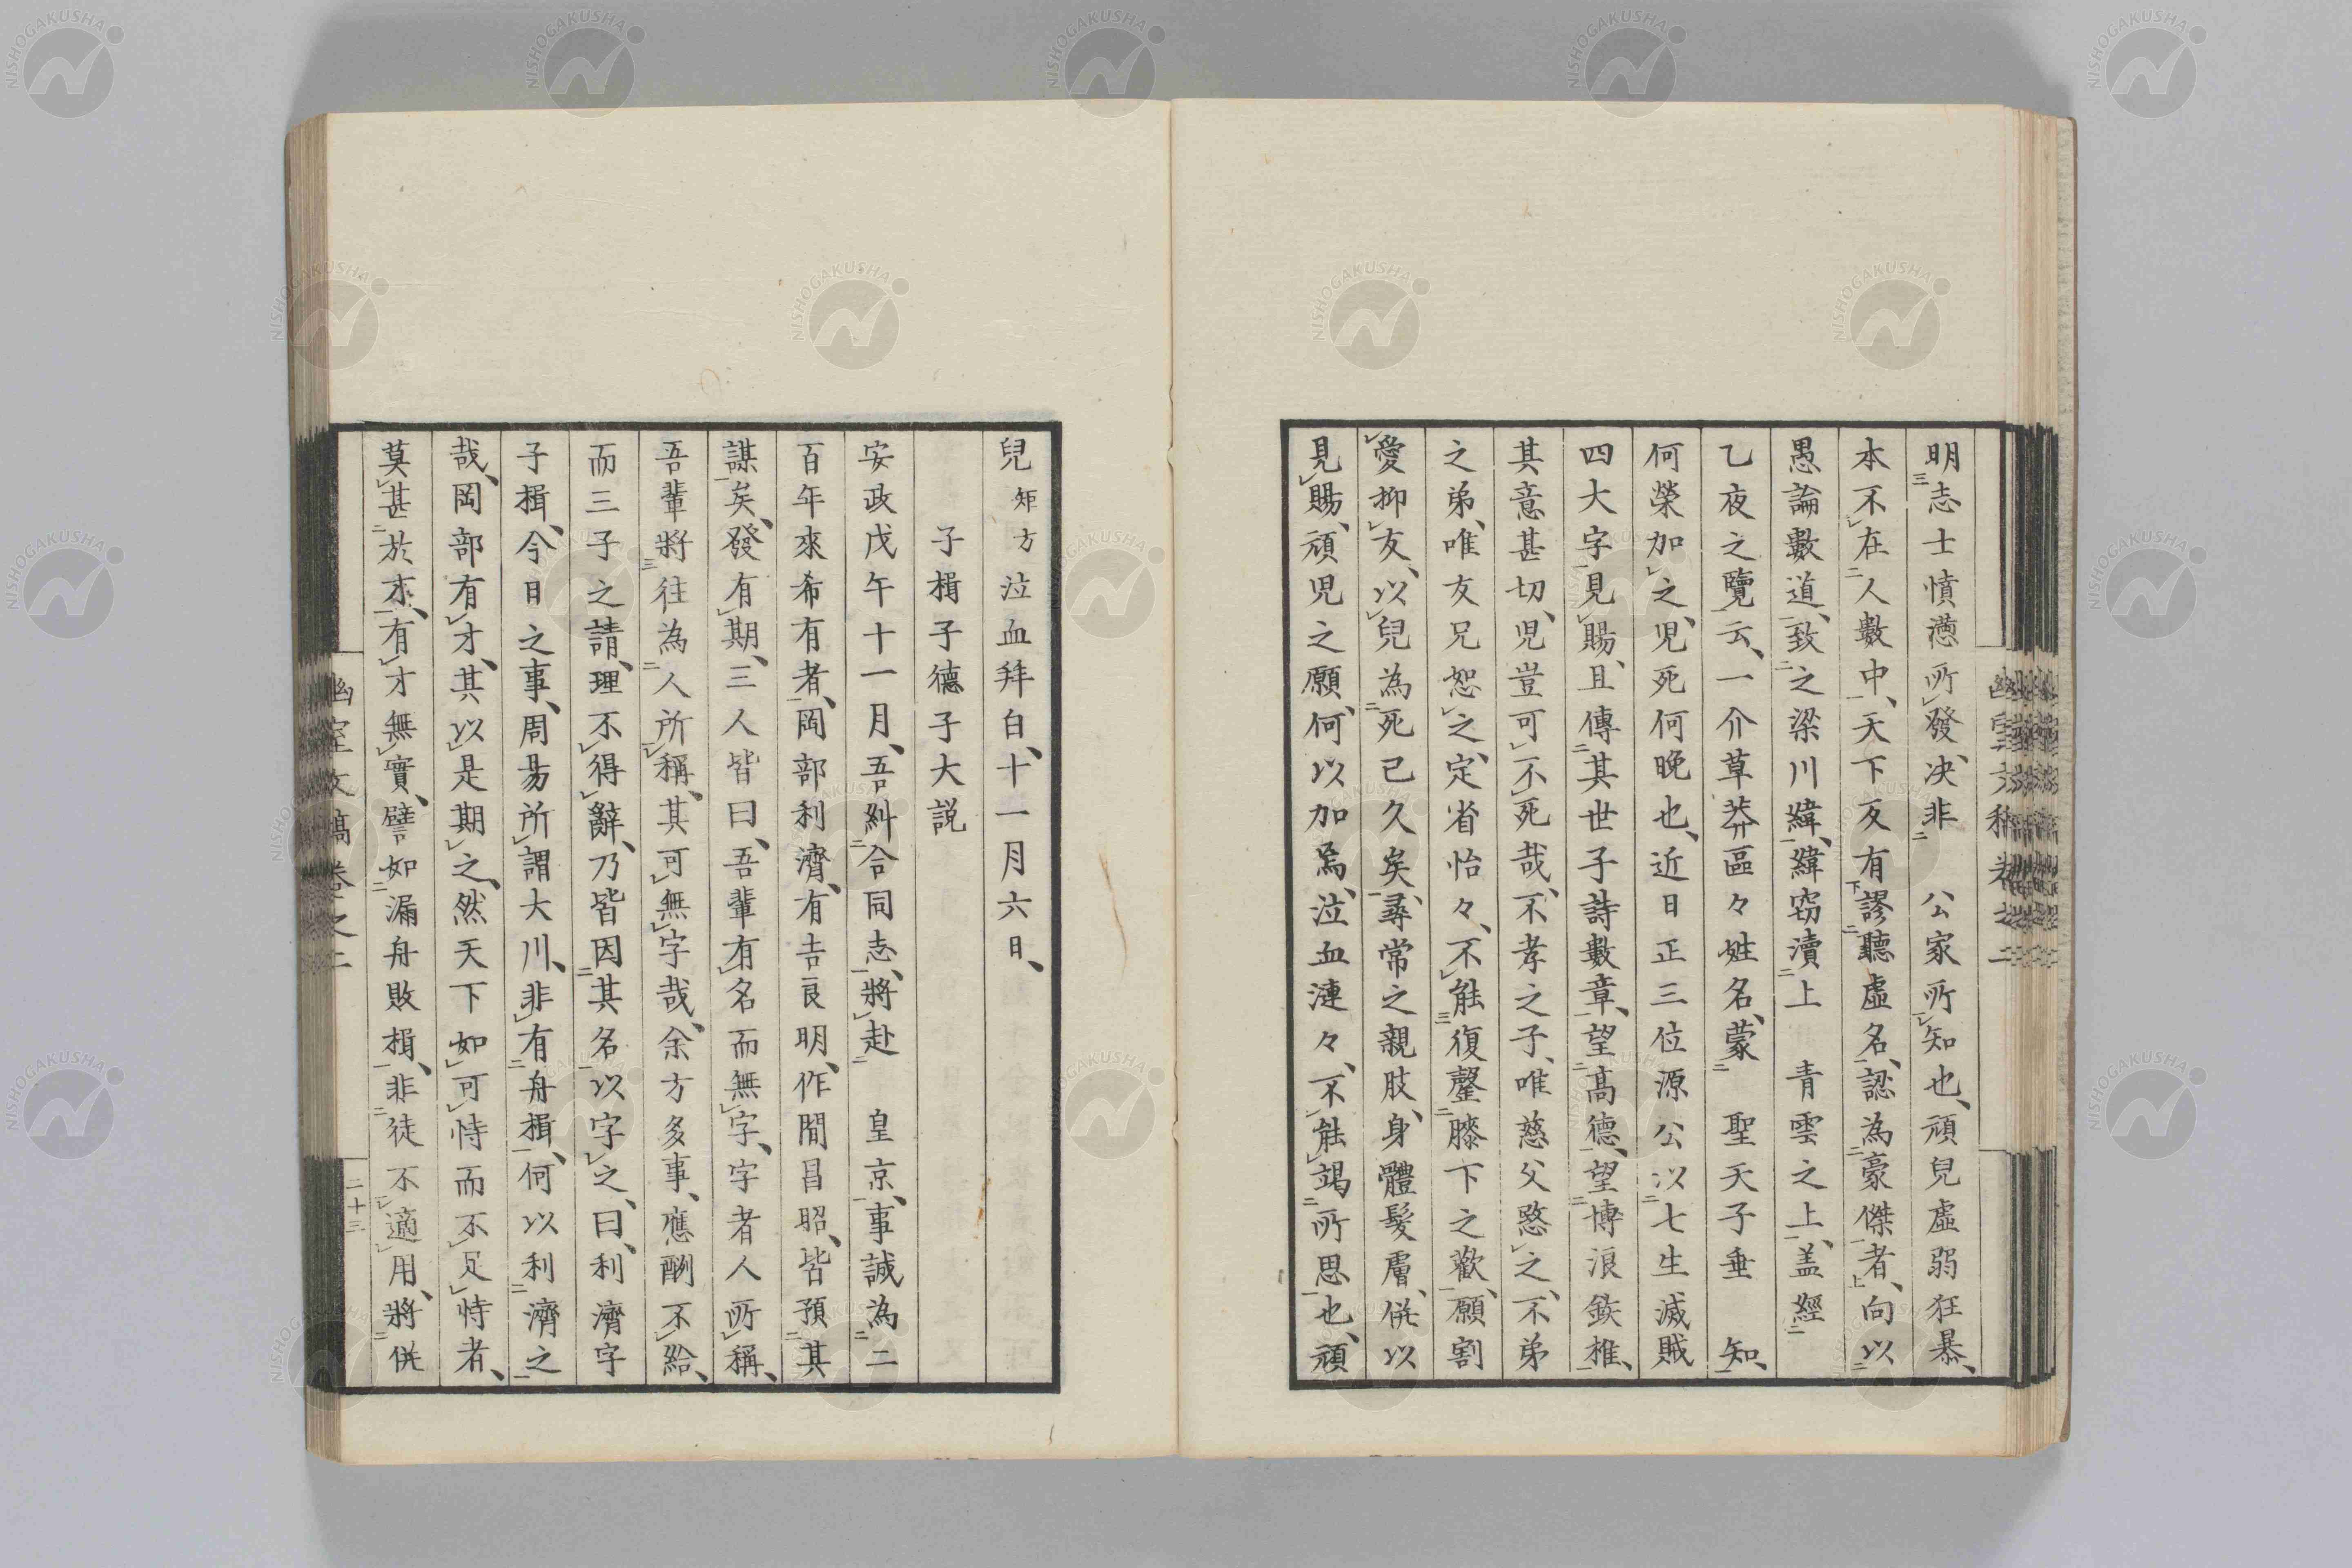 明志士憤懣所發、决非　公家所知也、頑兒虛弱狂暴、
本不在人數中、天下反有謬聽虛名、認為豪傑者、向以
愚論數道、致之梁川緯、緯窃瀆上　青雲之上、盖經
乙夜之覽云、一介草莽區々姓名、蒙　聖天子垂　知、
何榮加之、児死何晚也、近日正三位源公以七生滅賊
四大字見賜、且傳其世子詩數章、望高德、望博浪鉄椎、
其意甚切、児豈可不死哉、不孝之子、唯慈父愍之、不弟
之弟、唯友兄恕之、定省怡々、不能復罄膝下之歡、願割
愛抑友、以兒為死已久矣、尋常之親肢、身體髮膚、併以
見賜、頑児之願、何以加焉、泣血漣々、不能竭所思也、頑
兒矩方泣血拜白、十一月六日、
子楫子德子大説
安政戊午十一月、吾糾合同志、將赴　皇京、事誠為二
百年來希有者、岡部利濟、有吉良明、作間昌昭、皆預其
謀矣、發有期、三人皆曰、吾輩有名而無字、字者人所稱、
吾輩將往為人所稱、其可無字哉、余方多事、應酬不給、
而三子之請、理不得辭、乃皆因其名以字之、曰、利濟字
子楫、今日之事、周易所謂大川、非有舟楫、何以利濟之
哉、岡部有才、其以是期之、然天下如可恃而不足恃者、
莫甚於才、有才無實、譬如漏舟敗楫、非徒不適用、將併
幽室文稿卷之二
二十三